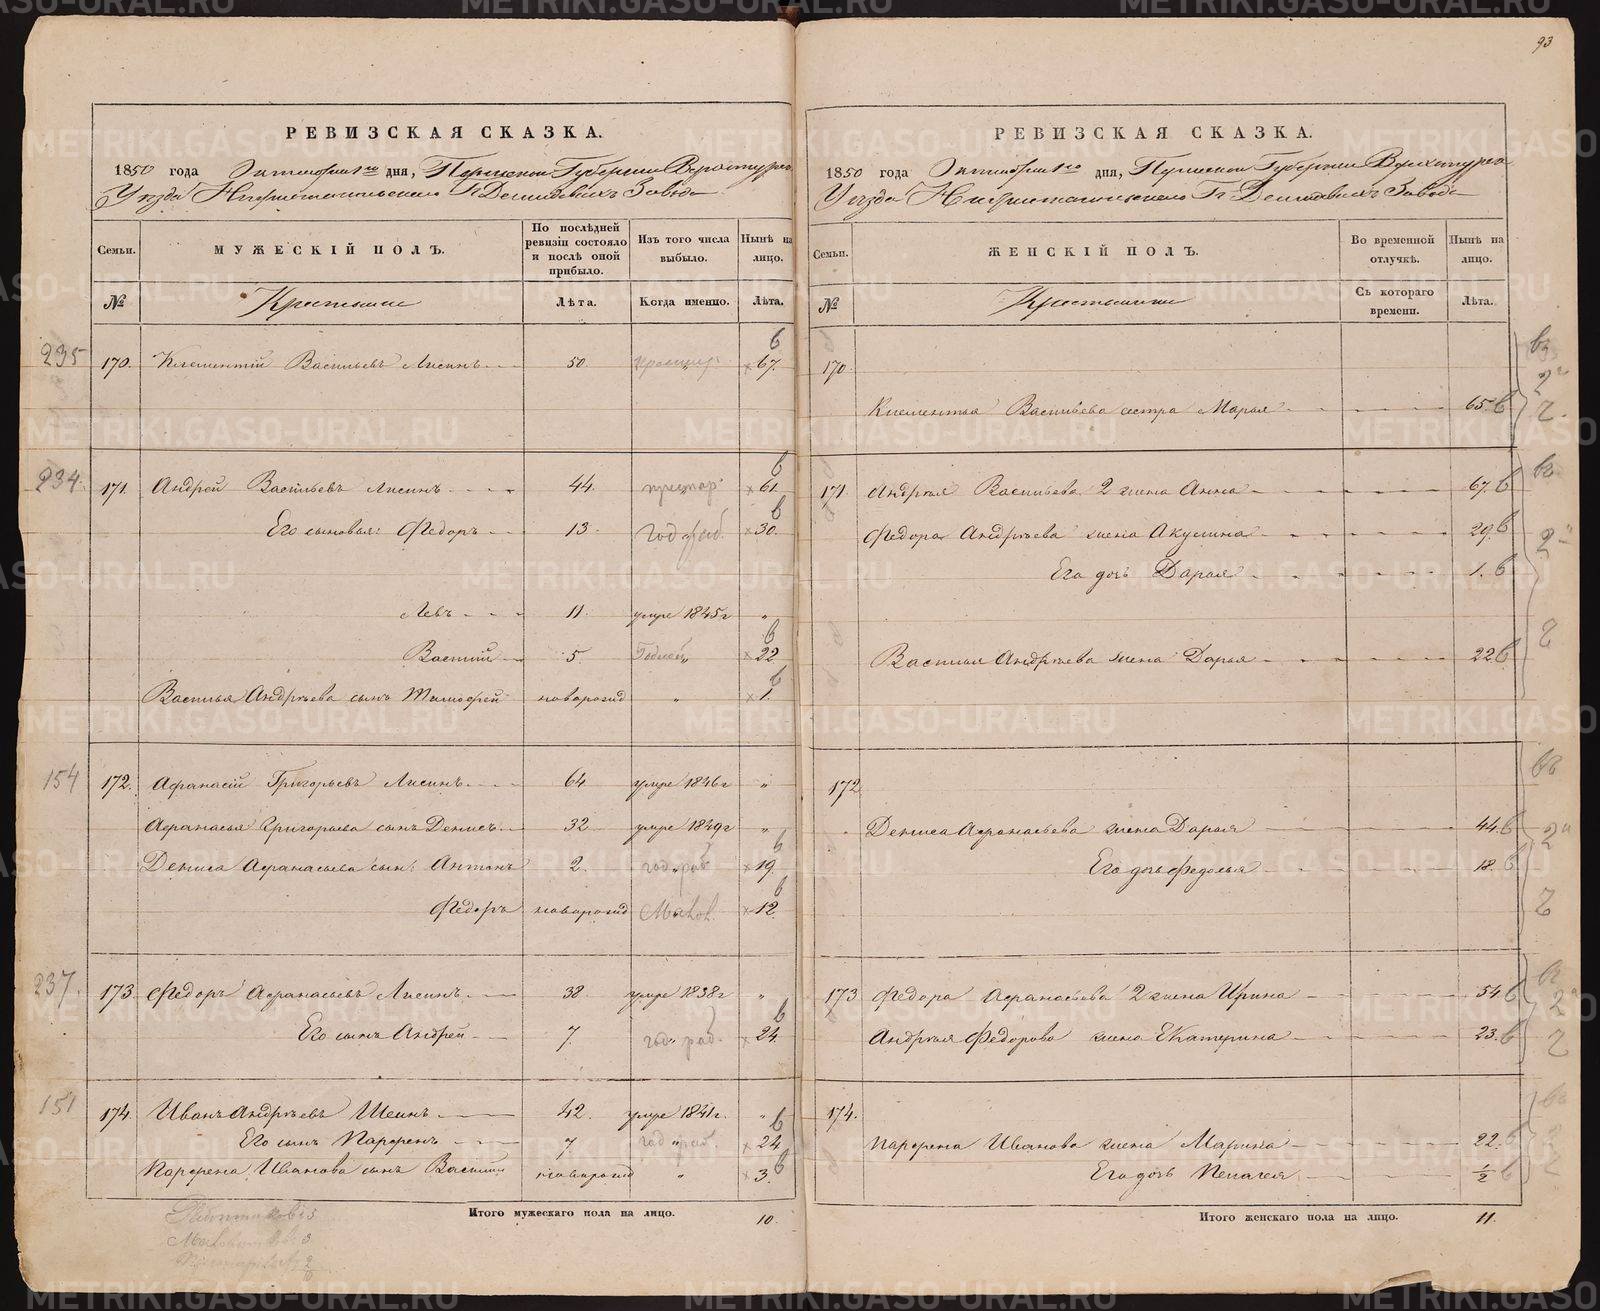 93
РЕВИЗСКАЯ СКАЗКА.
1850 года Октября 1го дня, Пермской Губернии Верхотурск
Уезда Нижнетагильского Гг Демидовыхъ Завода
Семьи. МУЖЕСКІЙ ПОЛЪ. По послѣдней ревизіи состояло и послѣ оной прибыло. Изъ того числа выбыло. Нынѣ на лицо.
№ Крестьяне Лѣта. Когда именно. Лѣта.
235 170. Климентій Васильевъ Лисинъ 50. 67. в
234. 171. Андрей Васильевъ Лисинъ 44. 61. в
Его сыновья: Федоръ 13. год раб. 30. в
Левъ 11. умре 1845г "
Василій 5. 22 в
Василья Андрѣева сынъ Тимофей новорожд " 1. в
154 172. Афанасій Григорьевъ Лисинъ 64 умре 1846г "
Афанасья Григорьева сынъ Денисъ 32 умре 1849г "
Дениса Афанасьева сын: Антонъ 2. год раб 19. в
Федоръ новорожд Малол. 12. в
237. 173 Федоръ Афанасьевъ Лисинъ 38 умре 1838г "
Его сынъ Андрей 7 год раб. 24 в
151 174. Иванъ Андрѣевъ Шеинъ 42. умре 1841г. "
Его сынъ Парфенъ 7 год раб. 24 в
Парфена Иванова сынъ Василій новорожд " 3. в
Итого мужескаго пола на лицо. 10.
Работниковъ 5
Малолѣт 3
2
РЕВИЗСКАЯ СКАЗКА.
1850 года Октября 1го дня, Пермской Губернии Верхотурск
Уезда Нижнетагильского Гг Демидовыхъ Завода
Семьи. ЖЕНСКІЙ ПОЛЪ. Во временной отлучкѣ. Нынѣ на лицо.
№ Крестьянки Съ котораго времени. Лѣта.
170
Климентья Васильева сестра Марья 65. в
171. Андрѣя Васильева 2 жена Анна 67. в
Федора Андрѣева жена Акулина 29. в
Его дочь Дарья 1. в
Василья Андрѣева жена Дарья 22 в
172
Дениса Афанасьева жена Дарья 44. в
Его дочь Федосья 18. в
173 Федора Афанасьева 2 жена Ирина 54 в
Андрѣя Федорова жена Екатерина 23. в
174.
Парфена Иванова жена Марина 22. в
Его дочь Пелагея 1/2 в
Итого женскаго пола на лицо. 11.
METRIKI.GASO-URAL.RU